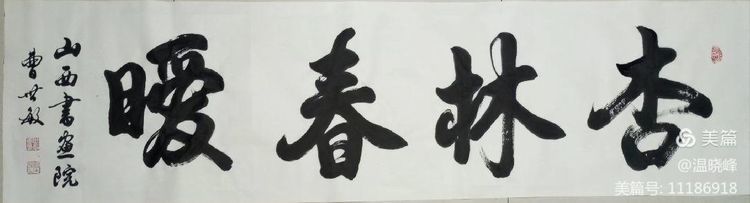 杏林春暖
山西书画院
曹世敏
美篇
@温晓峰
美篇号: 11186918